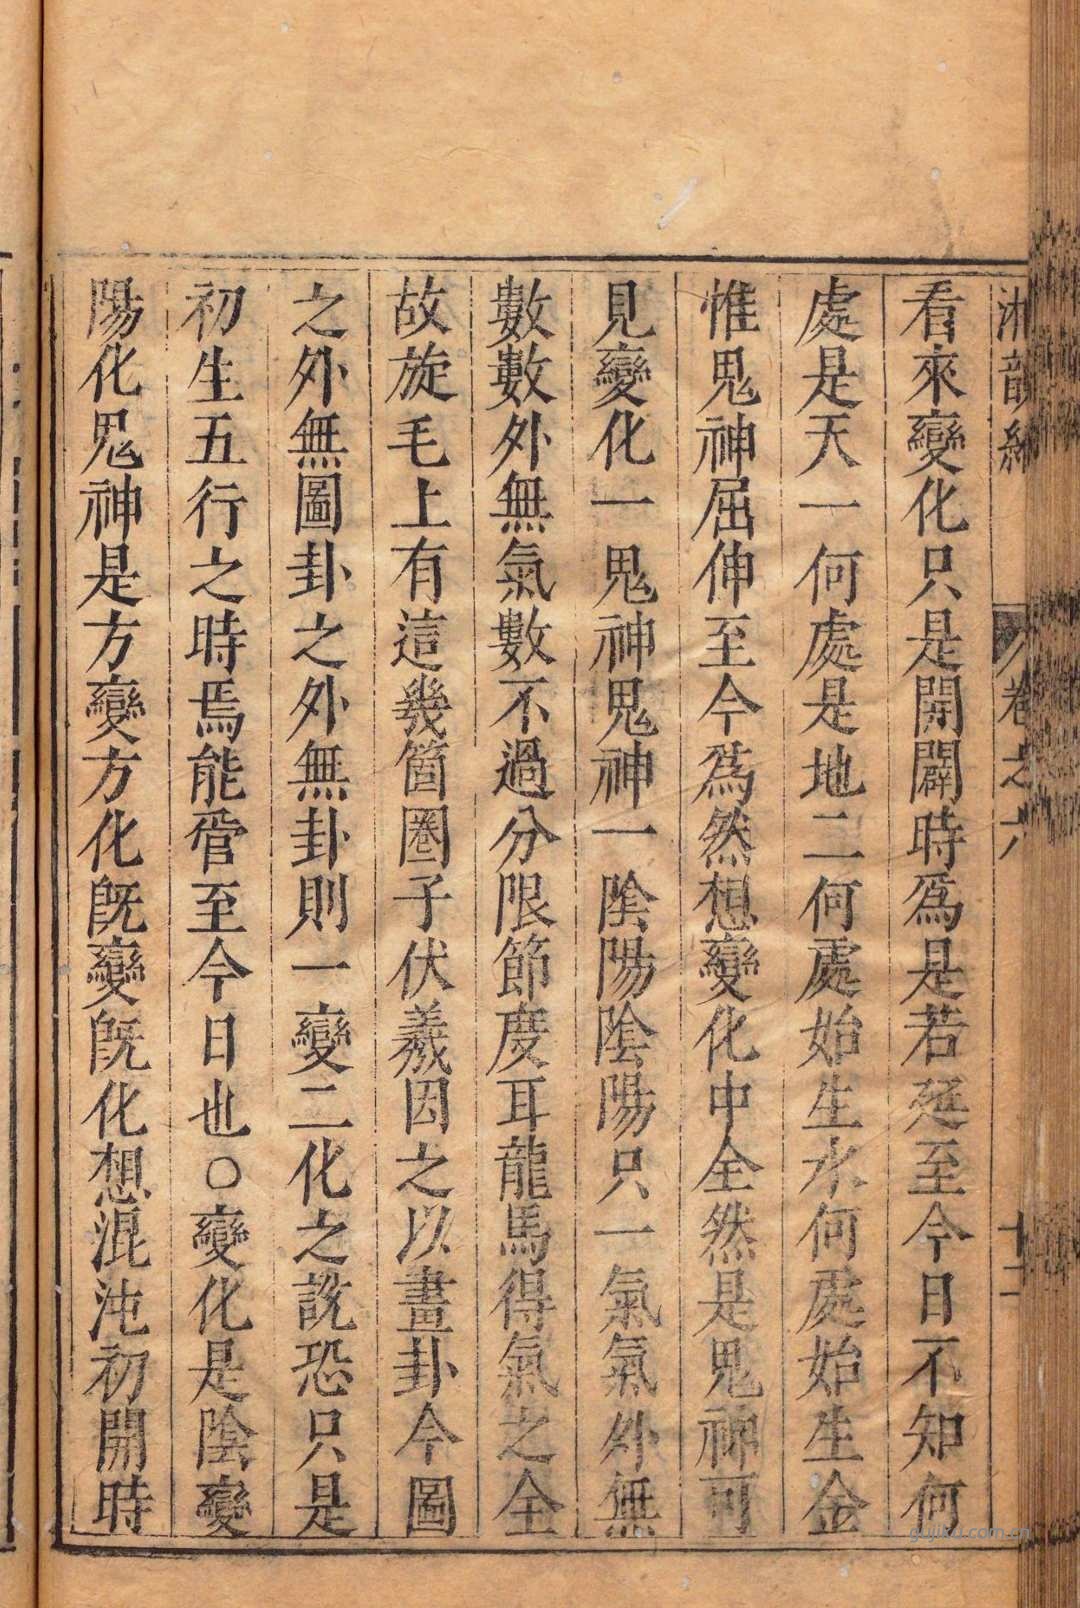 看來變化只是開闢時爲是若延至今日不知何
處是天一何處是地二何處始生水何處始生金
惟鬼神屈伸至今爲然想變化中全然是鬼神可
見變化一鬼神鬼神一陰陽陰陽只一氣氣外無
數數外無氣數不過分限節度耳龍馬得氣之全
故旋毛上有這幾箇圈子伏羲因之以畫卦今圖
之外無圖卦之外無卦則一變二化之說恐只是
初生五行之時焉能管至今日也○變化是陰變
陽化鬼神是方變方化旣變旣化想混沌初開時
卷之六
十二
gujiku.com.cn